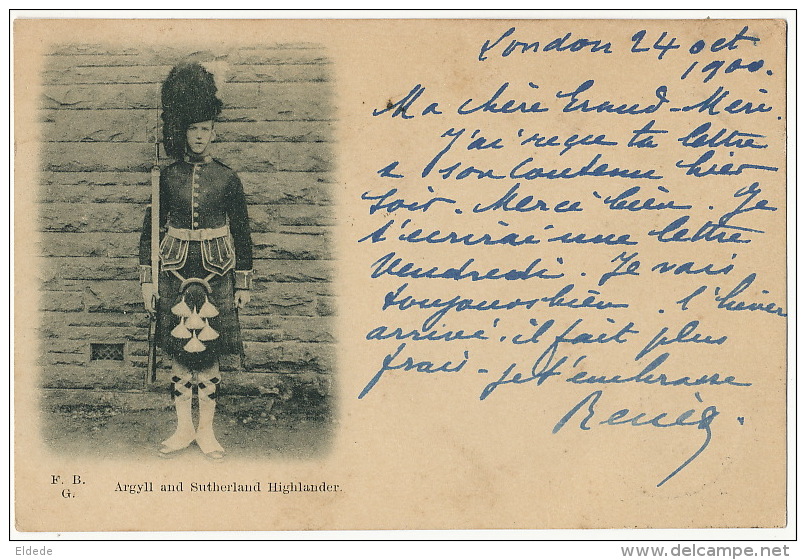 London 24 oct
1900.
Ma chère Grand-Mère.
J'ai reçue ta lettre
& son contenu hier
soir. Merci bien. Je
t'ecrirai une lettre
Vendredi. Je vais
toujours bien. l'hiver
arrivé. il fait plus
frais - je t'embrasse
Renée.
F. B.
G.
Argyll and Sutherland Highlander.
Eldede
delcampe.net